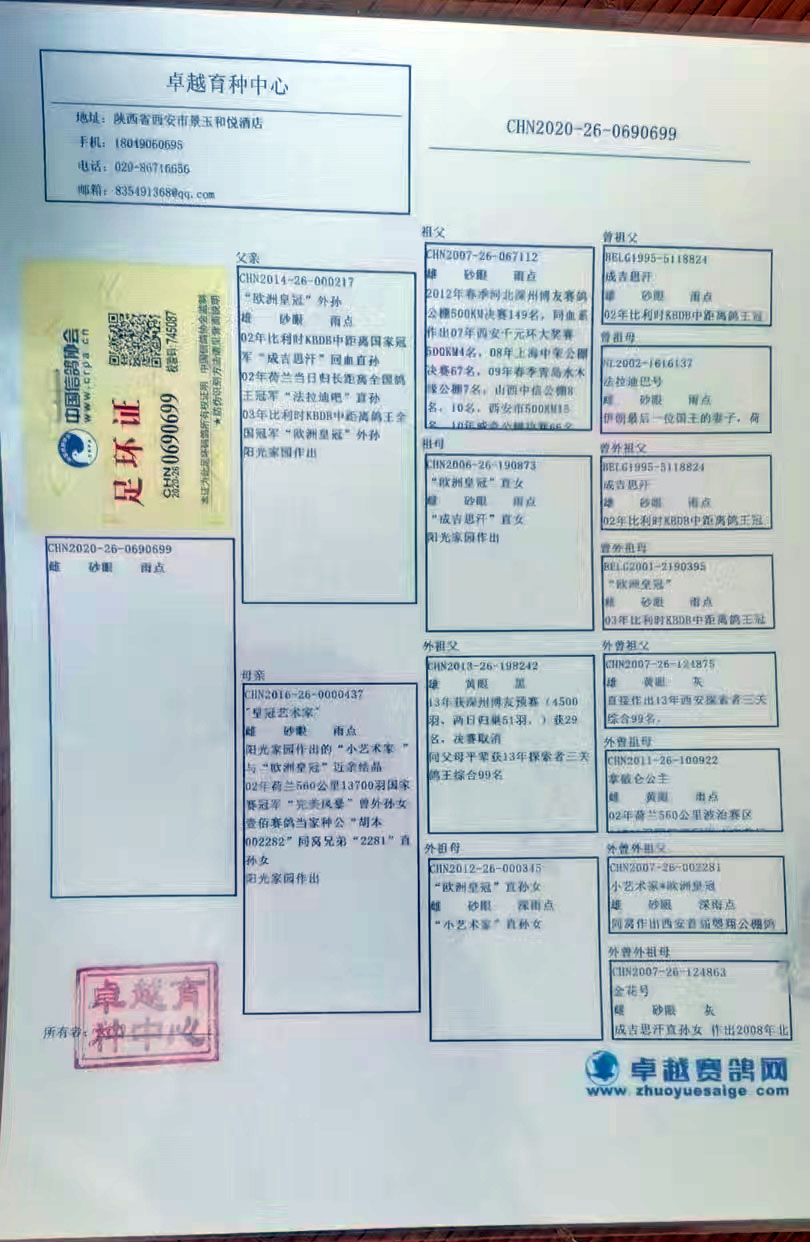 卓越育种中心
地址：陕西省西安市景玉和悦酒店
手机：18049060695
电话：029-86716656
邮箱：835491368@qq.com
CHN2020-26-0690699
中国信鸽协会
www.crpa.cn
足环证
CHN 0690699
2020-26
校验码：745087
本证为此足环赛鸽所有权证明 中国信鸽协会监制
CHN2020-26-0690699
雌 砂眼 雨点
所有者：
卓越育
种中心
父亲
CHN2014-26-000217
“欧洲皇冠”外孙
雄 砂眼 雨点
02年比利时KBDB中距离国家冠
军“成吉思汗”回血直孙
02年荷兰当日归长距离全国鸽
王冠军“法拉迪吧”直孙
03年比利时KBDB中距离鸽王全
国冠军“欧洲皇冠”外孙
阳光家园作出
母亲
CHN2016-26-0000437
"皇冠艺术家"
雌 砂眼 雨点
阳光家园作出的“小艺术家”
与“欧洲皇冠”近亲结晶
02年荷兰560公里13700羽国家
赛冠军“完美风暴”曾外孙女
壹佰赛鸽当家种公“胡本
002282”同窝兄弟“2281”直
孙女
阳光家园作出
祖父
CHN2007-26-067112
雄 砂眼 雨点
2012年春季河北深州博友赛鸽
公棚500KM决赛149名，同血系
作出07年西安千元环大奖赛
500KM4名，08年上海中荣公棚
决赛67名，09年春季青岛水木
缘公棚7名，山西中信公棚8
名，10名，西安市500KM15
祖母
CHN2006-26-190873
“欧洲皇冠”直女
雌 砂眼 雨点
“成吉思汗”直女
阳光家园作出
外祖父
CHN2013-26-198242
雄 黄眼 黑
13年获深州博友预赛（4500
羽，两日归巢51羽，）获29
名，决赛取消
同父母平辈获13年探索者三关
鸽王综合99名
外祖母
CHN2012-26-000345
“欧洲皇冠”直孙女
雌 砂眼 深雨点
“小艺术家”直孙女
曾祖父
BELG1995-5118824
成吉思汗
雄 砂眼 雨点
02年比利时KBDB中距离鸽王冠
曾祖母
NL2002-1616137
法拉迪巴号
雌 砂眼 雨点
伊朗最后一位国王的妻子，荷
曾外祖父
BELG1995-5118824
成吉思汗
雄 砂眼 雨点
02年比利时KBDB中距离鸽王冠
曾外祖母
BELG2001-2190395
“欧洲皇冠”
雌 砂眼 雨点
03年比利时KBDB中距离鸽王冠
外曾祖父
CHN2007-26-124875
雄 黄眼 灰
直接作出13年西安探索者三关
综合99名.
外曾祖母
CHN2011-26-100922
拿破仑公主
雌 黄眼 雨点
02年荷兰560公里波治赛区
外曾外祖父
CHN2007-26-002281
小艺术家*欧洲皇冠
雄 砂眼 深雨点
同窝作出西安首届翱翔公棚鸽
外曾外祖母
CHN2007-26-124863
金花号
雌 砂眼 灰
成吉思汗直孙女 作出2008年北
卓越赛鸽网
www.zhuoyuesaige.com